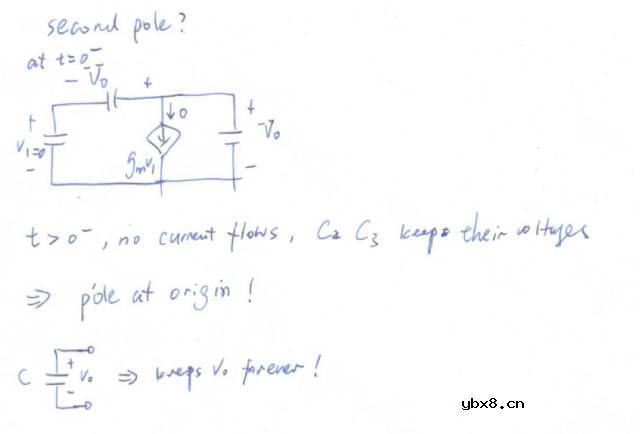 second pole?
at t=0⁻
− V₀ +
+ V₁=0 −
↓0
gₘV₁
+ V₀ −
t>0⁻, no current flows, C₂ C₃ keeps their voltages
⇒ pole at origin!
C + V₀ − ⇒ keeps V₀ forever!
ybx8.cn